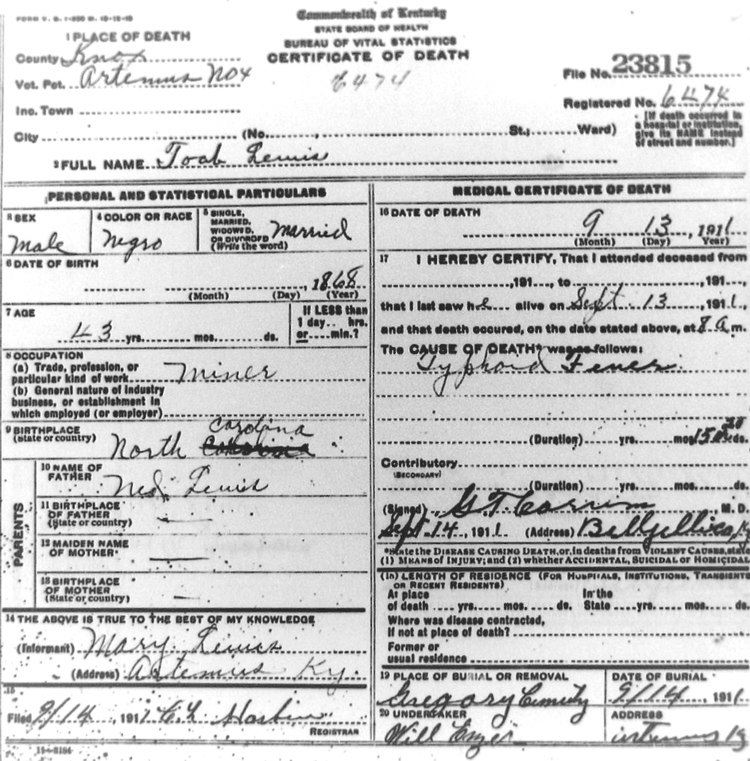 FORM V. S. 1-350 M. 10-12-10
Commonwealth of Kentucky
STATE BOARD OF HEALTH
BUREAU OF VITAL STATISTICS
CERTIFICATE OF DEATH
6474
1 PLACE OF DEATH
County Knox
Vot. Pct. Artemus No X
Inc. Town
City (No. , St.; Ward)
File No. 23815
Registered No. 6474
[If death occurred in
a hospital or institution,
give its NAME instead
of street and number.]
2 FULL NAME Toab Lewis
PERSONAL AND STATISTICAL PARTICULARS
3 SEX
Male
4 COLOR OR RACE
Negro
5 SINGLE,
MARRIED,
WIDOWED,
OR DIVORCED
(Write the word)
Married
6 DATE OF BIRTH
, 1868
(Month) (Day) (Year)
7 AGE
43 yrs. mos. ds.
If LESS than
1 day.. hrs.
or..... min.?
8 OCCUPATION
(a) Trade, profession, or
particular kind of work Miner
(b) General nature of industry
business, or establishment in
which employed (or employer)
9 BIRTHPLACE
(State or country)
Carolina
North
PARENTS
10 NAME OF
FATHER
Ned Lewis
11 BIRTHPLACE
OF FATHER
(State or country)
12 MAIDEN NAME
OF MOTHER
13 BIRTHPLACE
OF MOTHER
(State or country)
14 THE ABOVE IS TRUE TO THE BEST OF MY KNOWLEDGE
(Informant) Mary Lewis
(Address) Artemus Ky.
15
Filed 9/14 1911
REGISTRAR
11-3184
MEDICAL CERTIFICATE OF DEATH
16 DATE OF DEATH
9 13 1911
(Month) (Day) (Year)
17 I HEREBY CERTIFY, That I attended deceased from
, 191 , to , 191 ,
that I last saw he alive on Sept. 13 1911,
and that death occured, on the date stated above, at 8 a m.
The CAUSE OF DEATH* was as follows:
Typhoid Fever
(Duration) yrs. mos 15 20 ds.
Contributory
(SECONDARY)
(Duration) yrs. mos. ds.
(Signed) G T M. D.
Sept. 14, 1911 (Address)
*State the DISEASE CAUSING DEATH, or, in deaths from VIOLENT CAUSES, state
(1) MEANS of INJURY; and (2) whether ACCIDENTAL, SUICIDAL or HOMICIDAL
(18) LENGTH OF RESIDENCE (FOR HOSPITALS, INSTITUTIONS, TRANSIENTS
OR RECENT RESIDENTS)
At place In the
of death yrs. mos. ds. State yrs. mos. ds.
Where was disease contracted,
If not at place of death?
Former or
usual residence
19 PLACE OF BURIAL OR REMOVAL
Gregory Cemetry
DATE OF BURIAL
9/14 1911
20 UNDERTAKER
Will
ADDRESS
artemus Ky